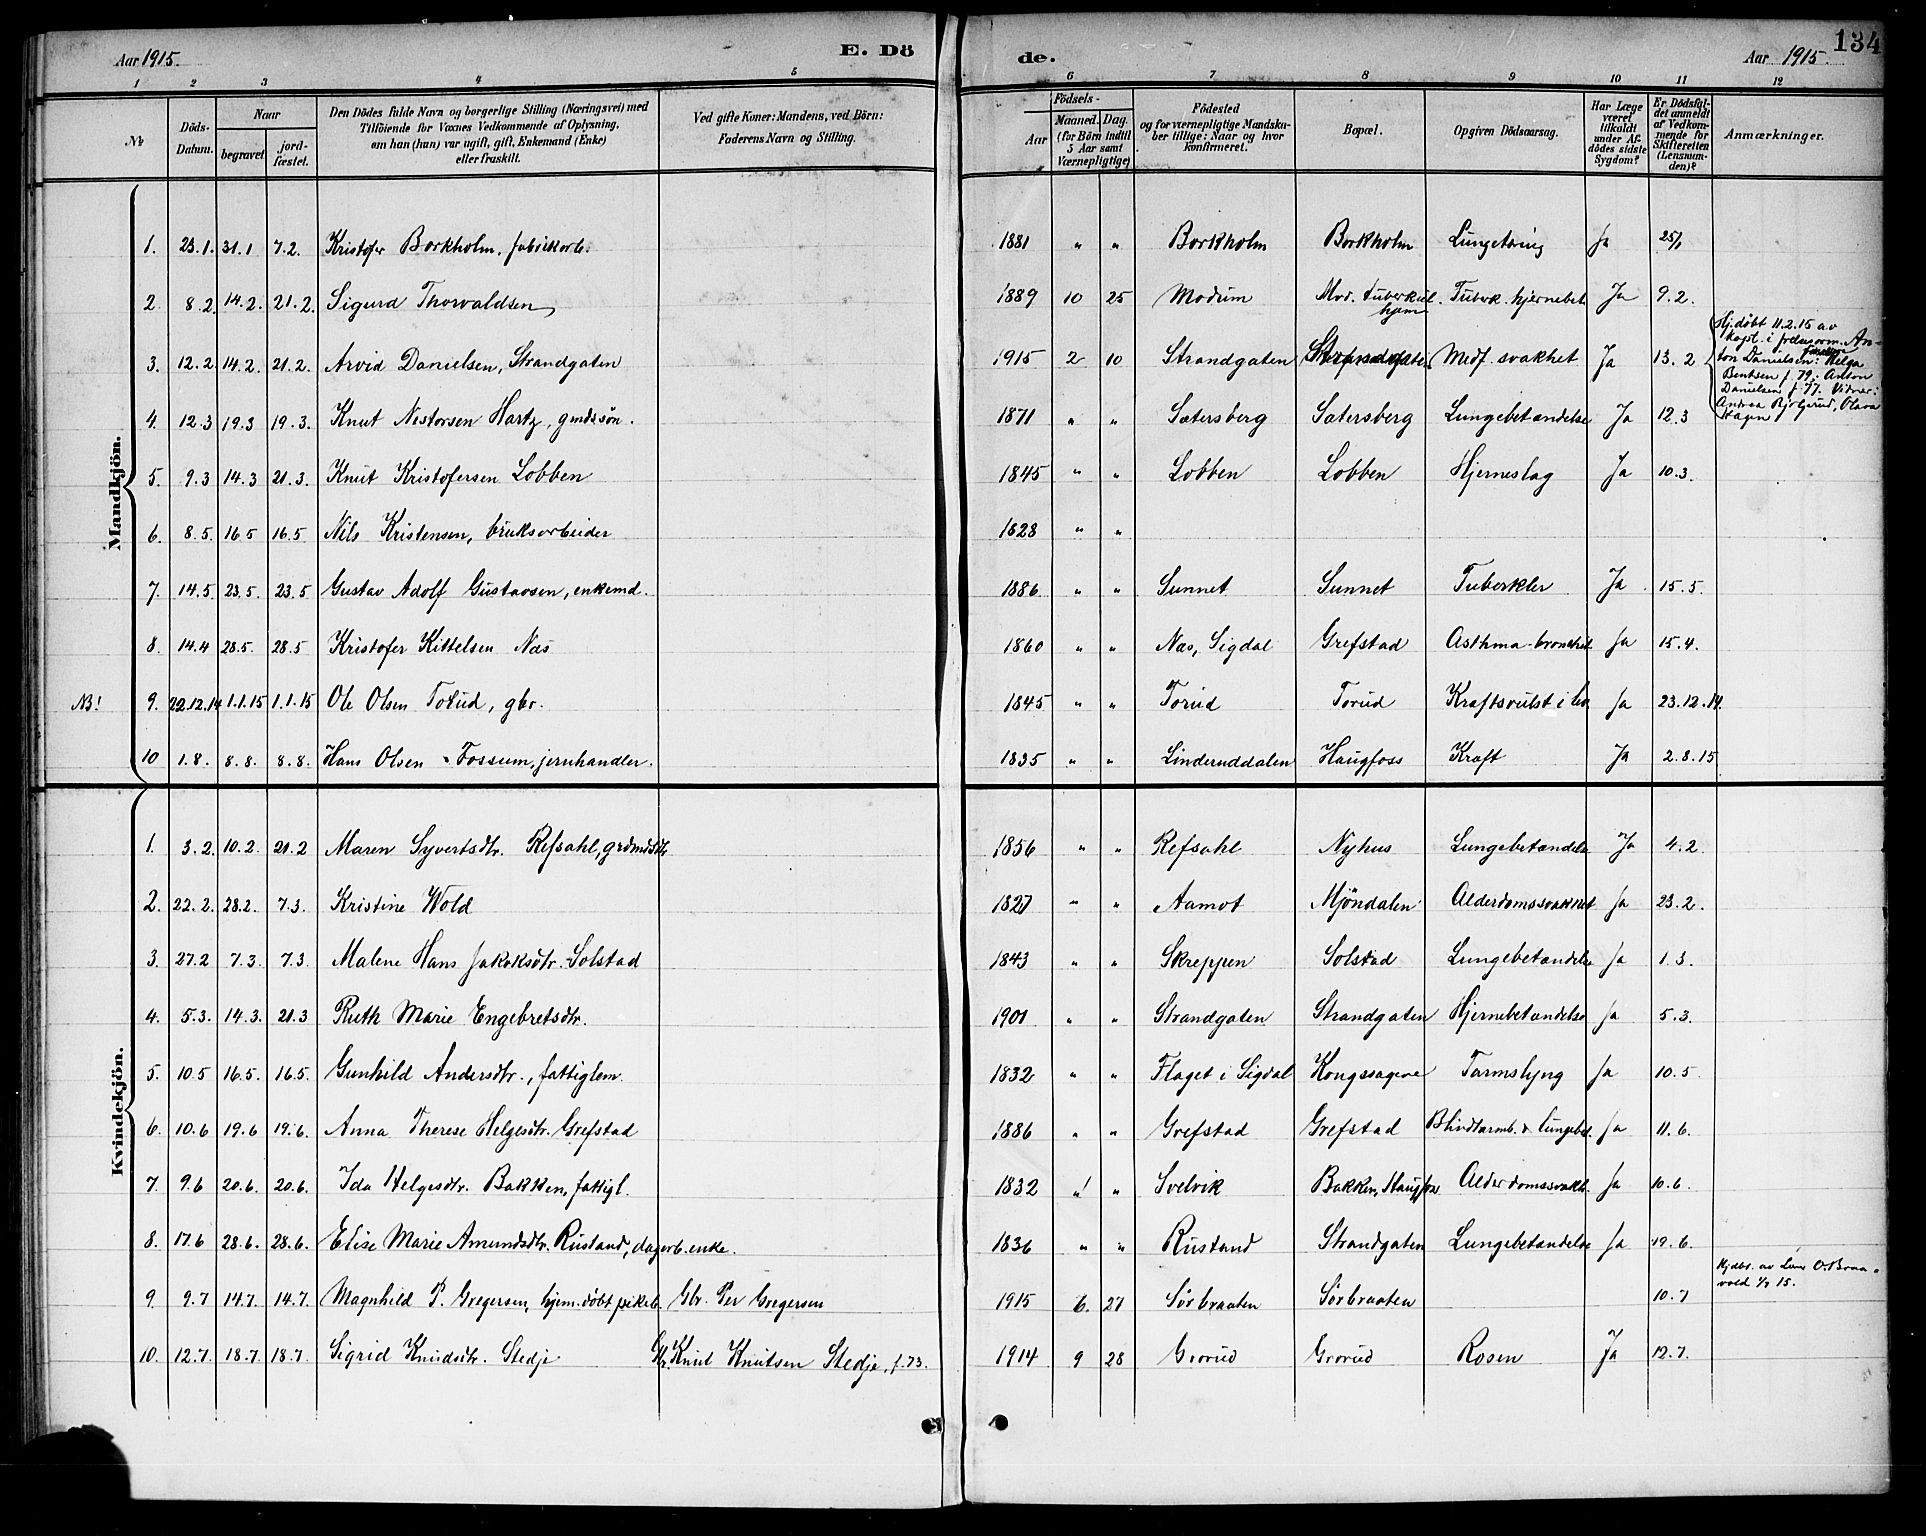 Aar 1915. E. Dö
de. Aar 1915. 134
1 2 3 4 5 6 7 8 9 10 11 12
№ Döds-Datum. Naar begravet jord-fæstet. Den Dödes fulde Navn og borgerlige Stilling (Næringsvei) med Tilföiende for Voxnes Vedkommende af Oplysning, om han (hun) var ugift, gift, Enkemand (Enke) eller fraskilt. Ved gifte Koner: Mandens, ved Börn: Faderens Navn og Stilling. Födsels- Aar Maaned. Dag. (for Börn indtil 5 Aar samt Værnepligtige) Födested og for værnepligtige Mandskaber tillige: Naar og hvor konfirmeret. Bopæl. Opgiven Dödsaarsag. Har Læge været tilkaldt under Afdödes sidste Sygdom? Er Dödsfaldet anmeldt af Vedkommende for Skifteretten (Lensmanden)? Anmærkninger.
Mandkjön.
1. 23.1. 31.1 7.2. Kristofer Borkholm, fabrikarb. 1881 " " Borkholm Borkholm Lungetæring Ja 25/1
2. 8.2 14.2. 21.2. Sigurd Thorvaldsen 1889 10 25 Modum Mod. tuberkulhjem Tuberk. hjernebet. Ja 9.2.
3. 12.2 14.2. 21.2. Arvid Danielsen, Strandgaten 1915 2 10 Strandgaten Strandgaten Medf. svakhet Ja 13.2 Hj.døbt 11.2.15 av kapt. i frelsesarm. Anton Danielsen. Foreldre: Helga Bentsen f. 79, Anton Danielsen f. 77. Vidner: Andrea, Olava Hagen
4. 12.3 19.3 19.3. Knut Nestorsen Hartz, gmdssøn. 1871 " " Sætersberg Sætersberg Lungebetændelse Ja 12.3
5. 9.3 14.3 21.3. Knut Kristofersen Lobben 1845 " " Lobben Lobben Hjerneslag Ja 10.3.
6. 8.5. 16.5 16.5 Nils Kristensen, bruksarbeider 1828 " "
7. 14.5 23.5. 23.5 Gustav Adolf Gustavsen, enkemd. 1886 " " Sunnet Sunnet Tuberkler Ja 15.5.
8. 14.4 28.5. 28.5 Kristofer Kittelsen Næs 1860 " " Næs, Sigdal Grefstad Asthma-bronchit Ja 15.4.
NB! 9. 22.12.14 1.1.15 1.1.15 Ole Olsen Torud, gbr. 1845 " " Torud Torud Kraftsvulst i lev. Ja 23.12.14.
10 1.8. 8.8. 8.8. Hans Olsen Fossum, jernhandler. 1835 " " Linderuddalen Haugfoss Kraft Ja 2.8.15
Kvindekjön.
1. 3.2. 10.2. 21.2 Maren Syvertsdtr. Refsahl, grdmdsdtr 1856 " " Refsahl Nyhus Lungebetændelse Ja 4.2
2. 22.2. 28.2. 7.3. Kristine Wold 1827 " " Aamot Mjöndalen Alderdomssvakhet Ja 23.2.
3. 27.2 7.3. 7.3. Malene Hans Jakoksdtr. Solstad 1843 " " Skreppen Solstad Lungebetændelse Ja 1.3.
4. 5.3. 14.3. 21.3 Ruth Marie Engebretsdtr. 1901 " " Strandgaten Strandgaten Hjernebetændelse Ja 5.3.
5. 10.5 16.5. 16.5. Gunhild Andersdtr., fattiglem. 1832 " " Flaget i Sigdal Kongssagene Tarmslyng Ja 10.5.
6. 10.6 19.6 19.6. Anna Therese Helgesdtr. Grefstad 1886 " " Grefstad Grefstad Blindtarmb. & lungebet. Ja 11.6.
7. 9.6 20.6. 20.6. Ida Helgesdtr. Bakken, fattigl. 1832 " " Svelvik Bakken, Haugfoss Alderdomssvakh. Ja 10.6.
8. 17.6 28.6. 28.6. Elise Marie Amundsdtr. Rustand, dagarb. enke. 1836 " " Rustand Strandgaten Lungebetændelse Ja 19.6.
9. 9.7 14.7. 14.7. Magnhild P. Gregersen, hjem.døbt pikeb. Gbr. Per Gregersen 1915 6. 27 Sörbraaten Sörbraaten 10.7 Hjdbt. av O. Braavold 15.
10. 12.7. 18.7 18.7. Sigrid Knudsdtr. Stedje Gbr. Knut Knutsen Stedje, f. 73. 1914 9 28 Grorud Grorud Rosen Ja 12.7.